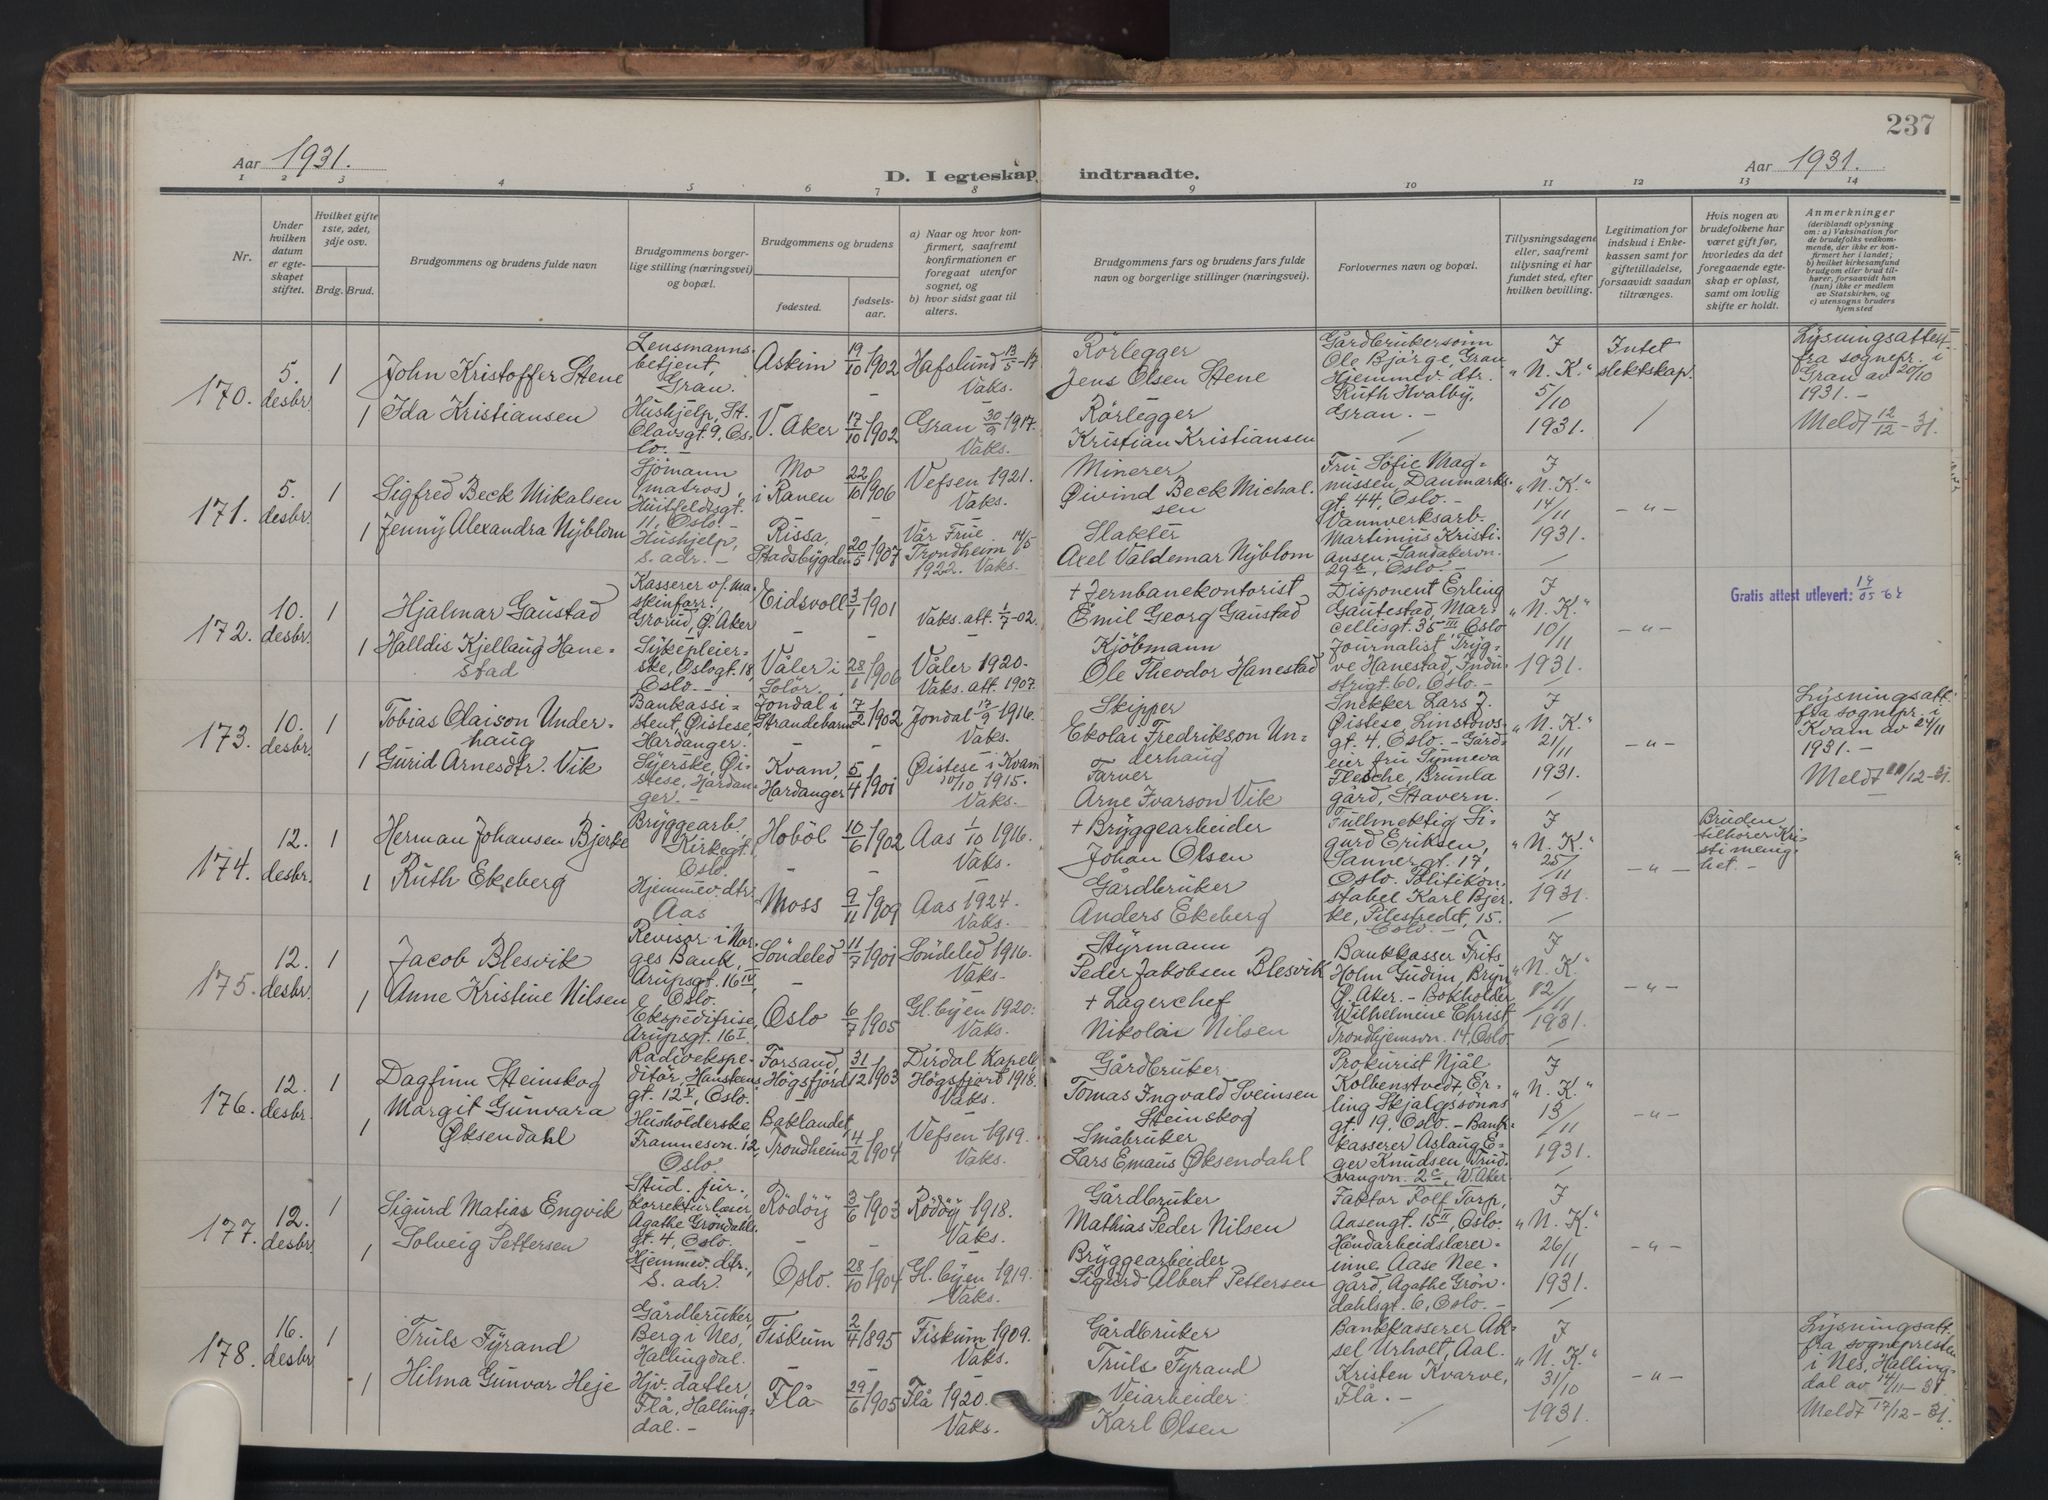 237
Aar 1931.
D. I egteskap indtraadte.
Aar 1931.
1 2 3 4 5 6 7 8 9 10 11 12 13 14
Nr.
Under hvilken datum er egteskapet stiftet.
Hvilket gifte 1ste, 2det, 3dje osv.
Brdg. Brud.
Brudgommens og brudens fulde navn
Brudgommens borgerlige stilling (næringsvei) og bopæl.
Brudgommens og brudens
fødested.
fødselsaar.
a) Naar og hvor konfirmert, saafremt konfirmationen er foregaat utenfor sognet, og
b) hvor sidst gaat til alters.
Brudgommens fars og brudens fars fulde navn og borgerlige stillinger (næringsvei).
Forlovernes navn og bopæl.
Tillysningsdagene eller, saafremt tillysning ei har fundet sted, efter hvilken bevilling.
Legitimation for indskud i Enkekassen samt for giftetilladelse, forsaavidt saadun tiltrænges.
Hvis nogen av brudefolkene har været gift før, hvorledes da det foregaaende egteskap er opløst, samt om lovlig skifte er holdt.
Anmerkninger
(deriblandt oplysning om: a) Vaksination for de brudefolks vedkommende, der ikke er konfirmert her i landet;
b) hvilket kirkesamfund brudgom eller brud tilhører, forsaavidt han (hun) ikke er medlem av Statskirken, og
c) utensogns bruders hjemsted
170. 5. desbr. 1
John Kristoffer Stene
Lensmannsbetjent, Gran.
Askim 19/10 1902
Hafslund 13/5-17 Vaks.
Rörlegger
Jens Olsen Stene
Gårdbrukersönn Ole Bjørge, Gran
Hjemmev. dtr. Ruth Hvalby, Gran. -
I "N. K." 5/10 1931.
Intet slektskap.
Lysningsattest fra sognepr. i Gran av 20/10 1931. -
Meldt 12/12-31.
1 Ida Kristiansen
Hushjelp, St. Olavsgt. 9, Oslo. -
V. Aker 17/10 1902
Gran 30/9 1917. Vaks.
Rörlegger
Kristian Kristiansen
171. 5. desbr. 1
Sigfred Beck Mikalsen
Sjömann (matros), Huitfeldtsgt. 11, Oslo. -
Mo i Ranen 22/10 1906
Vefsen 1921. Vaks.
Minerer
Øivind Beck Michalsen
Fru Sofie Magnussen, Danmarksgt. 44, Oslo. -
Vannverksarb. Martinius Kristiansen, Sandakervn. 29, Oslo. -
I "N. K." 14/11 1931.
- " -
1 Jenny Alexandra Nyblom
Hushjelp, s. adr. -
Rissa, Stadsbygden 20/5 1907
Vår Frue Trondheim 14/5 1922. Vaks.
Slakter
Axel Valdemar Nyblom
172. 10. desbr. 1
Hjalmar Gaustad
Kasserer v/. maskinforr. Grorud, Ø. Aker
Eidsvoll 3/1 1901
Vaks. att. 1/7-02.
+ Jernbanekontorist
Emil Georg Gaustad
Disponent Erling Gautestad, Marcellisgt. 35 III, Oslo
Journalist Trygve Hanestad, Industrigt. 60, Oslo. -
I "N. K." 10/11 1931.
- " -
Gratis attest utlevert:
1 Halldis Kjellaug Hanestad
Sykepleierske, Oslogt. 18, Oslo. -
Våler i Solör. 28/1 1906
Våler 1920. Vaks. att. 1907.
Kjöbmann
Ole Theodor Hanestad
173. 10. desbr. 1
Tobias Olaison Underhaug
Bankassistent Øistese, Hardanger.
Jondal i Strandebarm 7/2 1902
Jondal 17/9 1916. Vaks.
Skipper
Ekolai Fredrikson Underhaug
Snekker Lars J. Øistese, Linstowsgt. 4, Oslo. - Gårdeier fru Synneva Flesche, Brunla gård, Stavern.
I "N. K." 21/11 1931.
- " -
Lysningsatt. fra sognepr. i Kvam av 24/11 1931. -
Meldt 11/12-31.
1 Gurid Arnesdtr. Vik
Syerske, Øistese, Hardanger. -
Kvam, Hardanger 5/4 1901
Øistese i Kvam 10/10 1915. Vaks.
Farver
Arne Ivarson Vik
174. 12. desbr. 1
Herman Johansen Bjerke
Bryggearb. Kirkegt. Oslo.
Hoböl 10/6 1902
Aas 1/10 1916. Vaks.
+ Bryggearbeider
Johan Olsen
Fullmektig Sigurd Eriksen, Sannergt. 17, Oslo. Politikonstabel Karl Bjerke, Pilestredet, 15. Oslo. -
I "N. K." 25/11 1931.
- " -
Bruden tilhörer Kristi menighet. -
1 Ruth Ekeberg
Hjemmev. dtr. Aas
Moss 9/11 1909
Aas 1924. Vaks.
Gårdbruker
Anders Ekeberg
175. 12. desbr. 1
Jacob Blesvik
Revisor i Norges Bank, Arupsgt. 16 IV, Oslo.
Söndeled 11/7 1901
Söndeled 1916. Vaks.
Styrmann
Peder Jakobsen Blesvik
Bankkasser Frits Holm Gudim, Bryn Ø. Aker. - Bokholder Wilhelmine Christ Trondhjemsvn. 14, Oslo
I "N. K." 12/11 1931.
- " -
1 Anne Kristine Nilsen
Ekspeditrise, Arupsgt. 16 I
Oslo 6/7 1905
Gl. byen 1920. Vaks.
+ Lagerchef
Nikolai Nilsen
176. 12. desbr. 1
Dagfinn Steinskog
Radioekspeditör, Hansteensgt. 12 V, Oslo.
Forsand, Högsfjord 31/12 1903
Dirdal Kapell Högsfjord 1918. Vaks.
Gårdbruker
Tomas Ingvald Sveinsen Steinskog
Prokurist Njål Kolbenstvedt, Erling Skjalgssönsgt. 19, Oslo. - Bankkasserer Aslaug Eger Knudsen, Trudvangvn. 2c, V. Aker
I "N. K." 13/11 1931.
- " -
1 Margit Gunvara Øksendahl
Husholderske Framnesvn. 12, Oslo.
Baklandet, Trondheim 4/2 1904
Vefsen 1919. Vaks.
Småbruker
Lars Emaus Øksendahl
177. 12. desbr. 1
Sigurd Matias Engvik
Stud. jur., korrekturlæser Agathe Gröndahlsgt. 4, Oslo.
Rödöy 3/6 1903
Rödöy 1918. Vaks.
Gårdbruker
Mathias Peder Nilsen
Faktor Rolf Torp, Aasengt. 15 II, Oslo.
Håndarbeidslærerinne Aase Neegård, Agathe Gröndahlsgt. 6, Oslo. -
I "N. K." 26/11 1931.
- " -
1 Solveig Pettersen
Hjemmev. dtr., s. adr.
Oslo. 28/10 1904
Gl. byen 1919. Vaks.
Bryggearbeider
Sigurd Albert Pettersen
178. 16. desbr 1
Truls Fyrand
Gårdbruker, Berg i Nes, Hallingdal.
Fiskum 2/4 1895
Fiskum 1909. Vaks.
Gårdbruker
Truls Fyrand
Bankkasserer Aksel Urholt, Aal.
Kristen Kvarve, Flå. -
I "N. K." 31/10 1931.
- " -
Lysningsatt. fra sognepresten i Nes, Hallingdal av 14/11-31
Meldt 17/12-31.
1 Hilma Gunvor Heje
Hjv. datter, Flå, Hallingdal. -
Flå 29/6 1905
Flå 1920. Vaks.
Veiarbeider
Karl Olsen